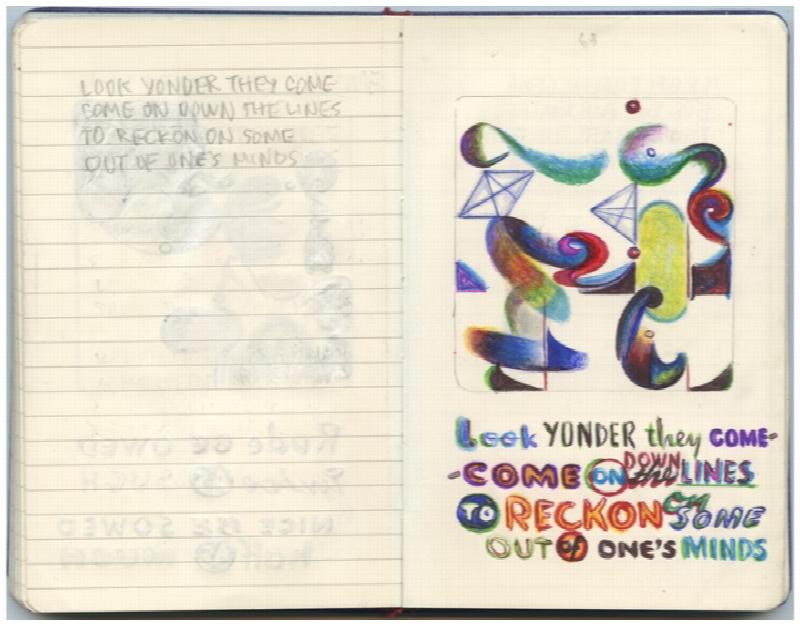 LOOK YONDER THEY COME
COME ON DOWN THE LINES
TO RECKON ON SOME
OUT OF ONE'S MINDS
63
Look YONDER they COME-
-COME ON DOWN the LINES
TO RECKON on SOME
OUT of ONE'S MINDS